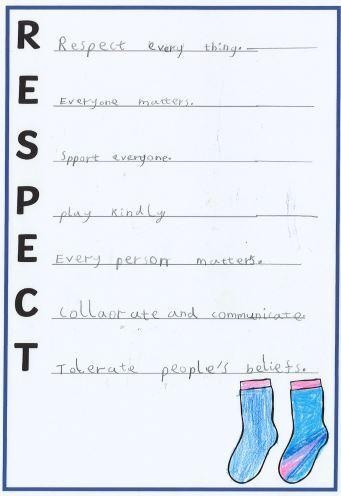 R Respect every thing.
E Everyone matters.
S Spport everyone.
P play kindly
E Every person matters.
C Collaprate and communicate.
T Tolerate people's beliefs.